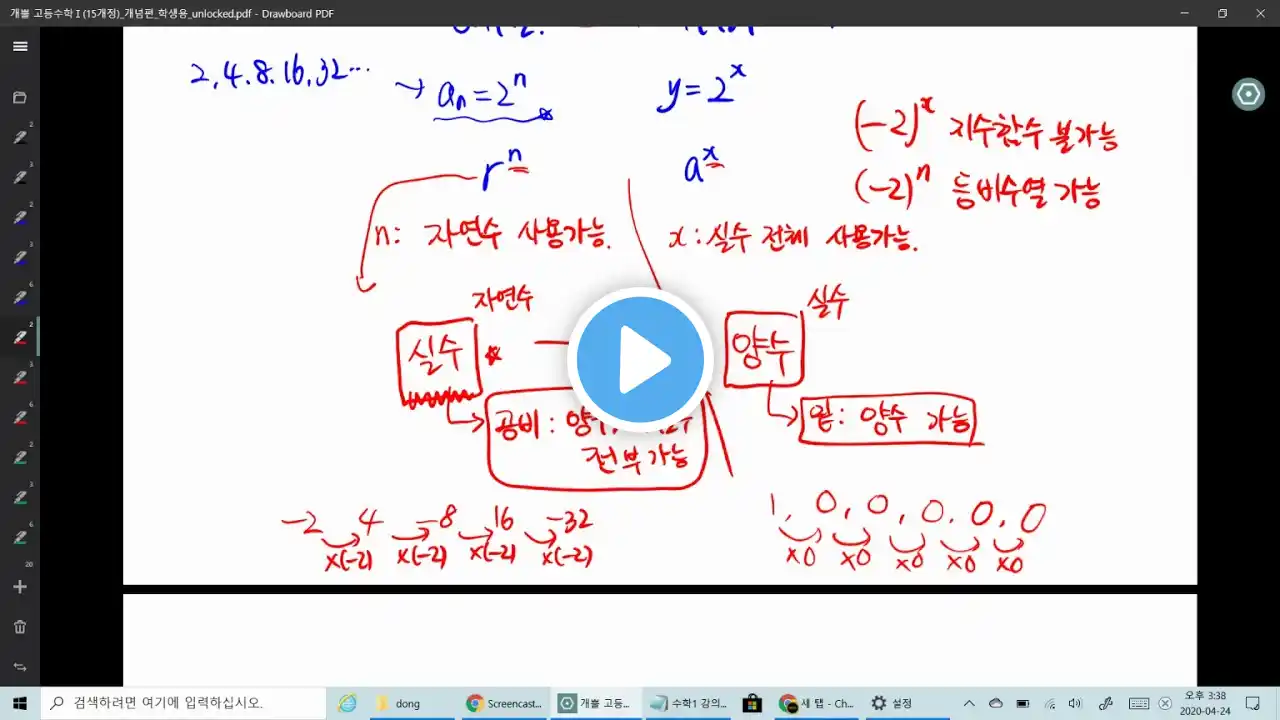 개쁠 고등수학 I (15개정)_개념편_학생용_unlocked.pdf - Drawboard PDF
2, 4, 8, 16, 32… → aₙ = 2ⁿ
y = 2ˣ
(-2)ˣ 지수함수 불가능
rⁿ
aˣ
(-2)ⁿ 등비수열 가능
n: 자연수 사용가능.
x: 실수 전체 사용가능.
자연수
실수
실수
양수
공비: 양수,
전부가능
밑: 양수 가능
-2 4 -8 16 -32
×(-2) ×(-2) ×(-2) ×(-2)
1, 0, 0, 0, 0, 0
×0 ×0 ×0 ×0 ×0
검색하려면 여기에 입력하십시오.
dong
Screencast...
개쁠 고등...
수학1 강의...
새 탭 - Ch...
설정
오후 3:38
2020-04-24